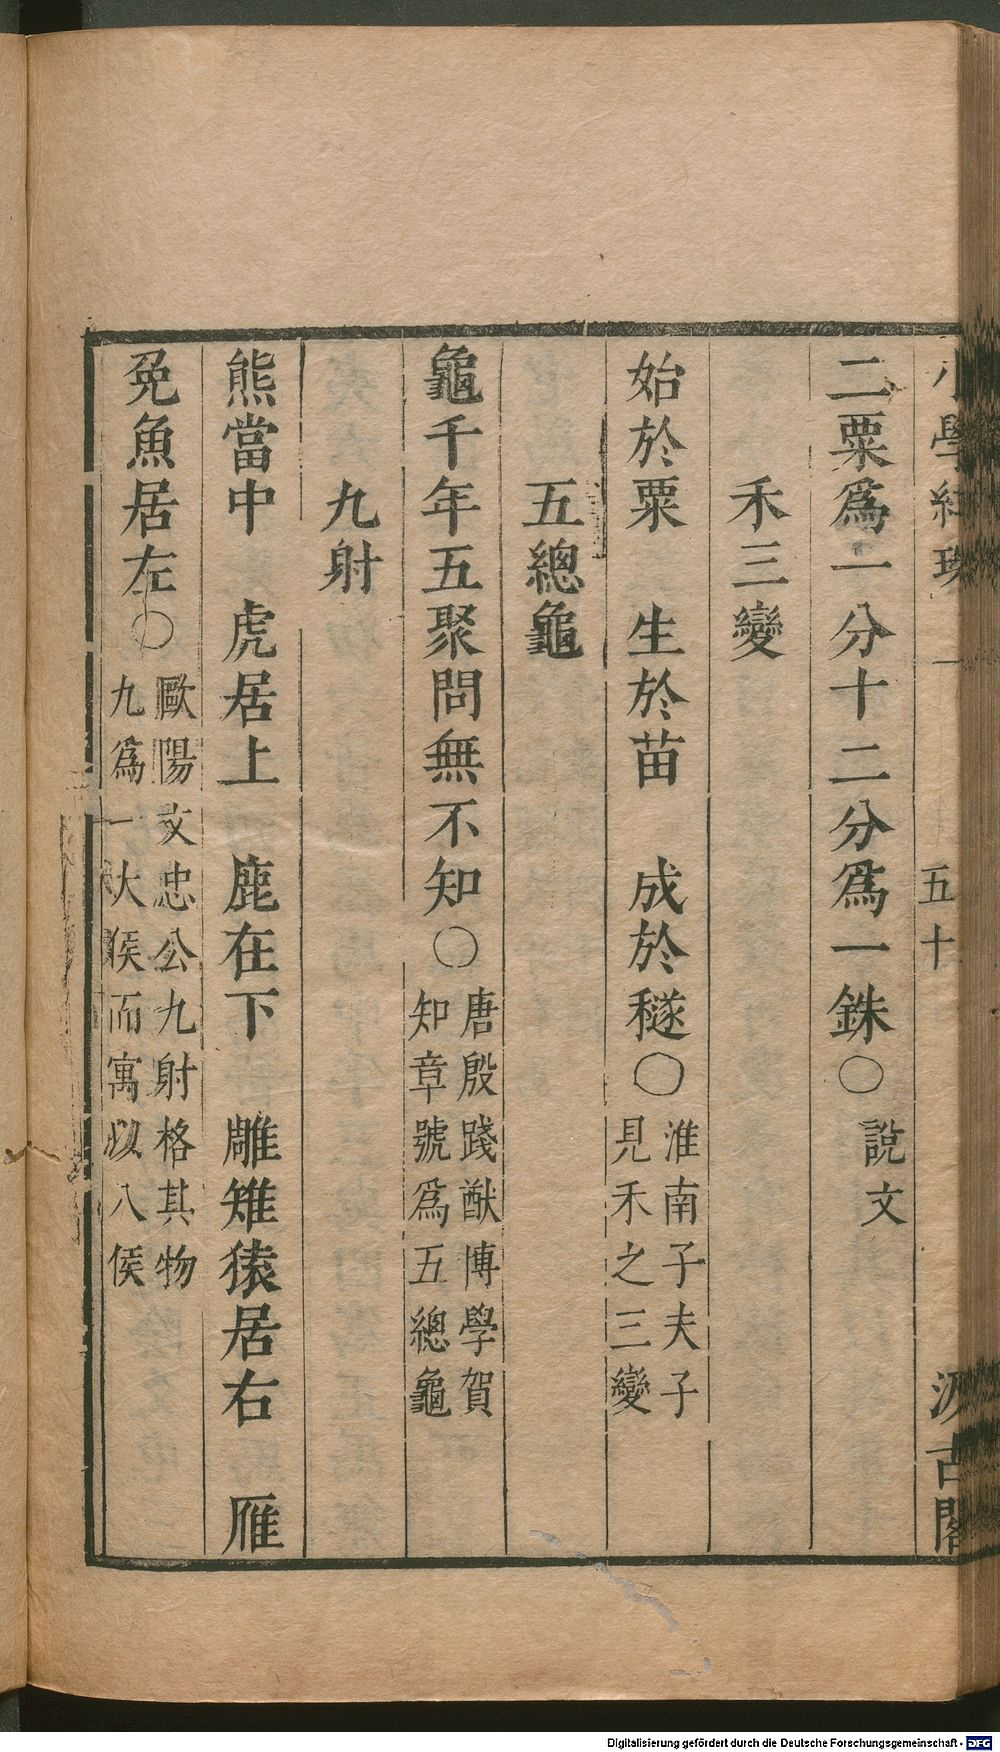 小學紺珠 一 五十 汲古閣
二粟爲一分十二分爲一銖○說文
禾三變
始於粟 生於苗 成於穟○淮南子夫子
見禾之三變
五總龜
龜千年五聚問無不知○唐殷踐猷博學賀
知章號爲五總龜
九射
熊當中 虎居上 鹿在下 雕雉猿居右 雁
兔魚居左○歐陽文忠公九射格其物
九爲一大侯而寓以八侯
Digitalisierung gefördert durch die Deutsche Forschungsgemeinschaft - DFG